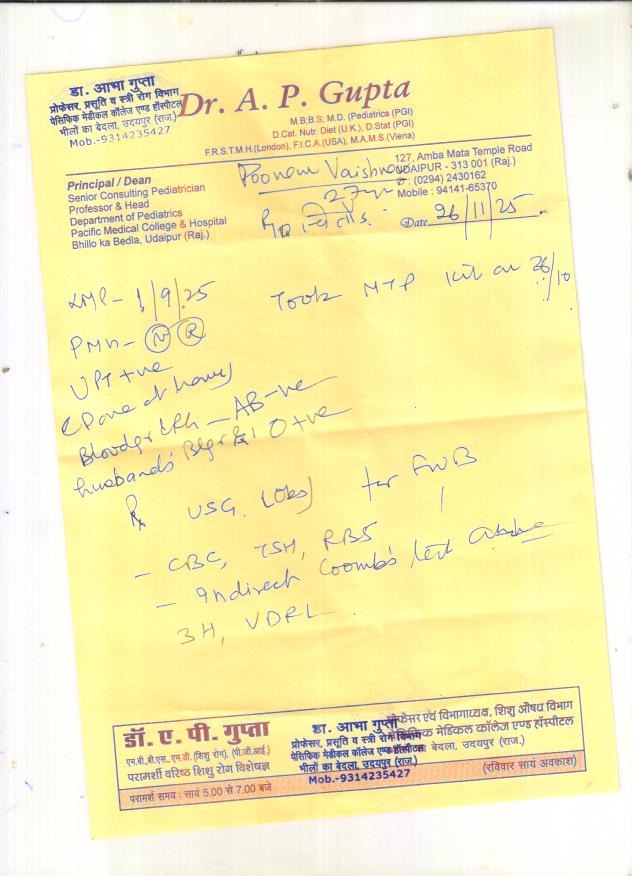 डा. आभा गुप्ता
प्रोफेसर, प्रसूति व स्त्री रोग विभाग
पेसिफिक मेडीकल कॉलेज एण्ड हॉस्पीटल
भीलों का बेदला, उदयपुर (राज.)
Mob.-9314235427
Dr. A. P. Gupta
M.B;B.S; M.D. (Pediatrics (PGI)
D.Cat. Nutr. Diet (U.K.), D.Stat (PGI)
F.R.S.T.M.H.(London), F.I.C.A.(USA), M.A.M.S.(Viena)
Principal / Dean
Senior Consulting Pediatrician
Professor & Head
Department of Pediatrics
Pacific Medical College & Hospital
Bhillo ka Bedla, Udaipur (Raj.)
Poonam Vaishnav
27yr
127, Amba Mata Temple Road
UDAIPUR - 313 001 (Raj.)
: (0294) 2430162
Mobile : 94141-65370
Date 26/11/25
LMP - 1/9/25 Took MTP Kit on 26/10
PMH - N R
UPT +ve
(Done at home)
Blood gr & Rh - AB -ve
husband's Bl gr O +ve
Rx USG (Obs) for FWB
- CBC, TSH, RBS
- Indirect Coomb's test
3H, VDRL.
डॉ. ए. पी. गुप्ता
एम.बी.बी.एस., एम.डी. (शिशु रोग), (पी.जी.आई.)
परामर्शी वरिष्ठ शिशु रोग विशेषज्ञ
परामर्श समय : सायं 5.00 से 7.00 बजे
डा. आभा गुप्ता
प्रोफेसर, प्रसूति व स्त्री रोग विभाग
पेसिफिक मेडीकल कॉलेज एण्ड हॉस्पीटल
भीलों का बेदला, उदयपुर (राज.)
Mob.-9314235427
प्रोफेसर एवं विभागाध्यक्ष, शिशु औषध विभाग
मेडिकल कॉलेज एण्ड हॉस्पीटल
बेदला, उदयपुर (राज.)
(रविवार सायं अवकाश)